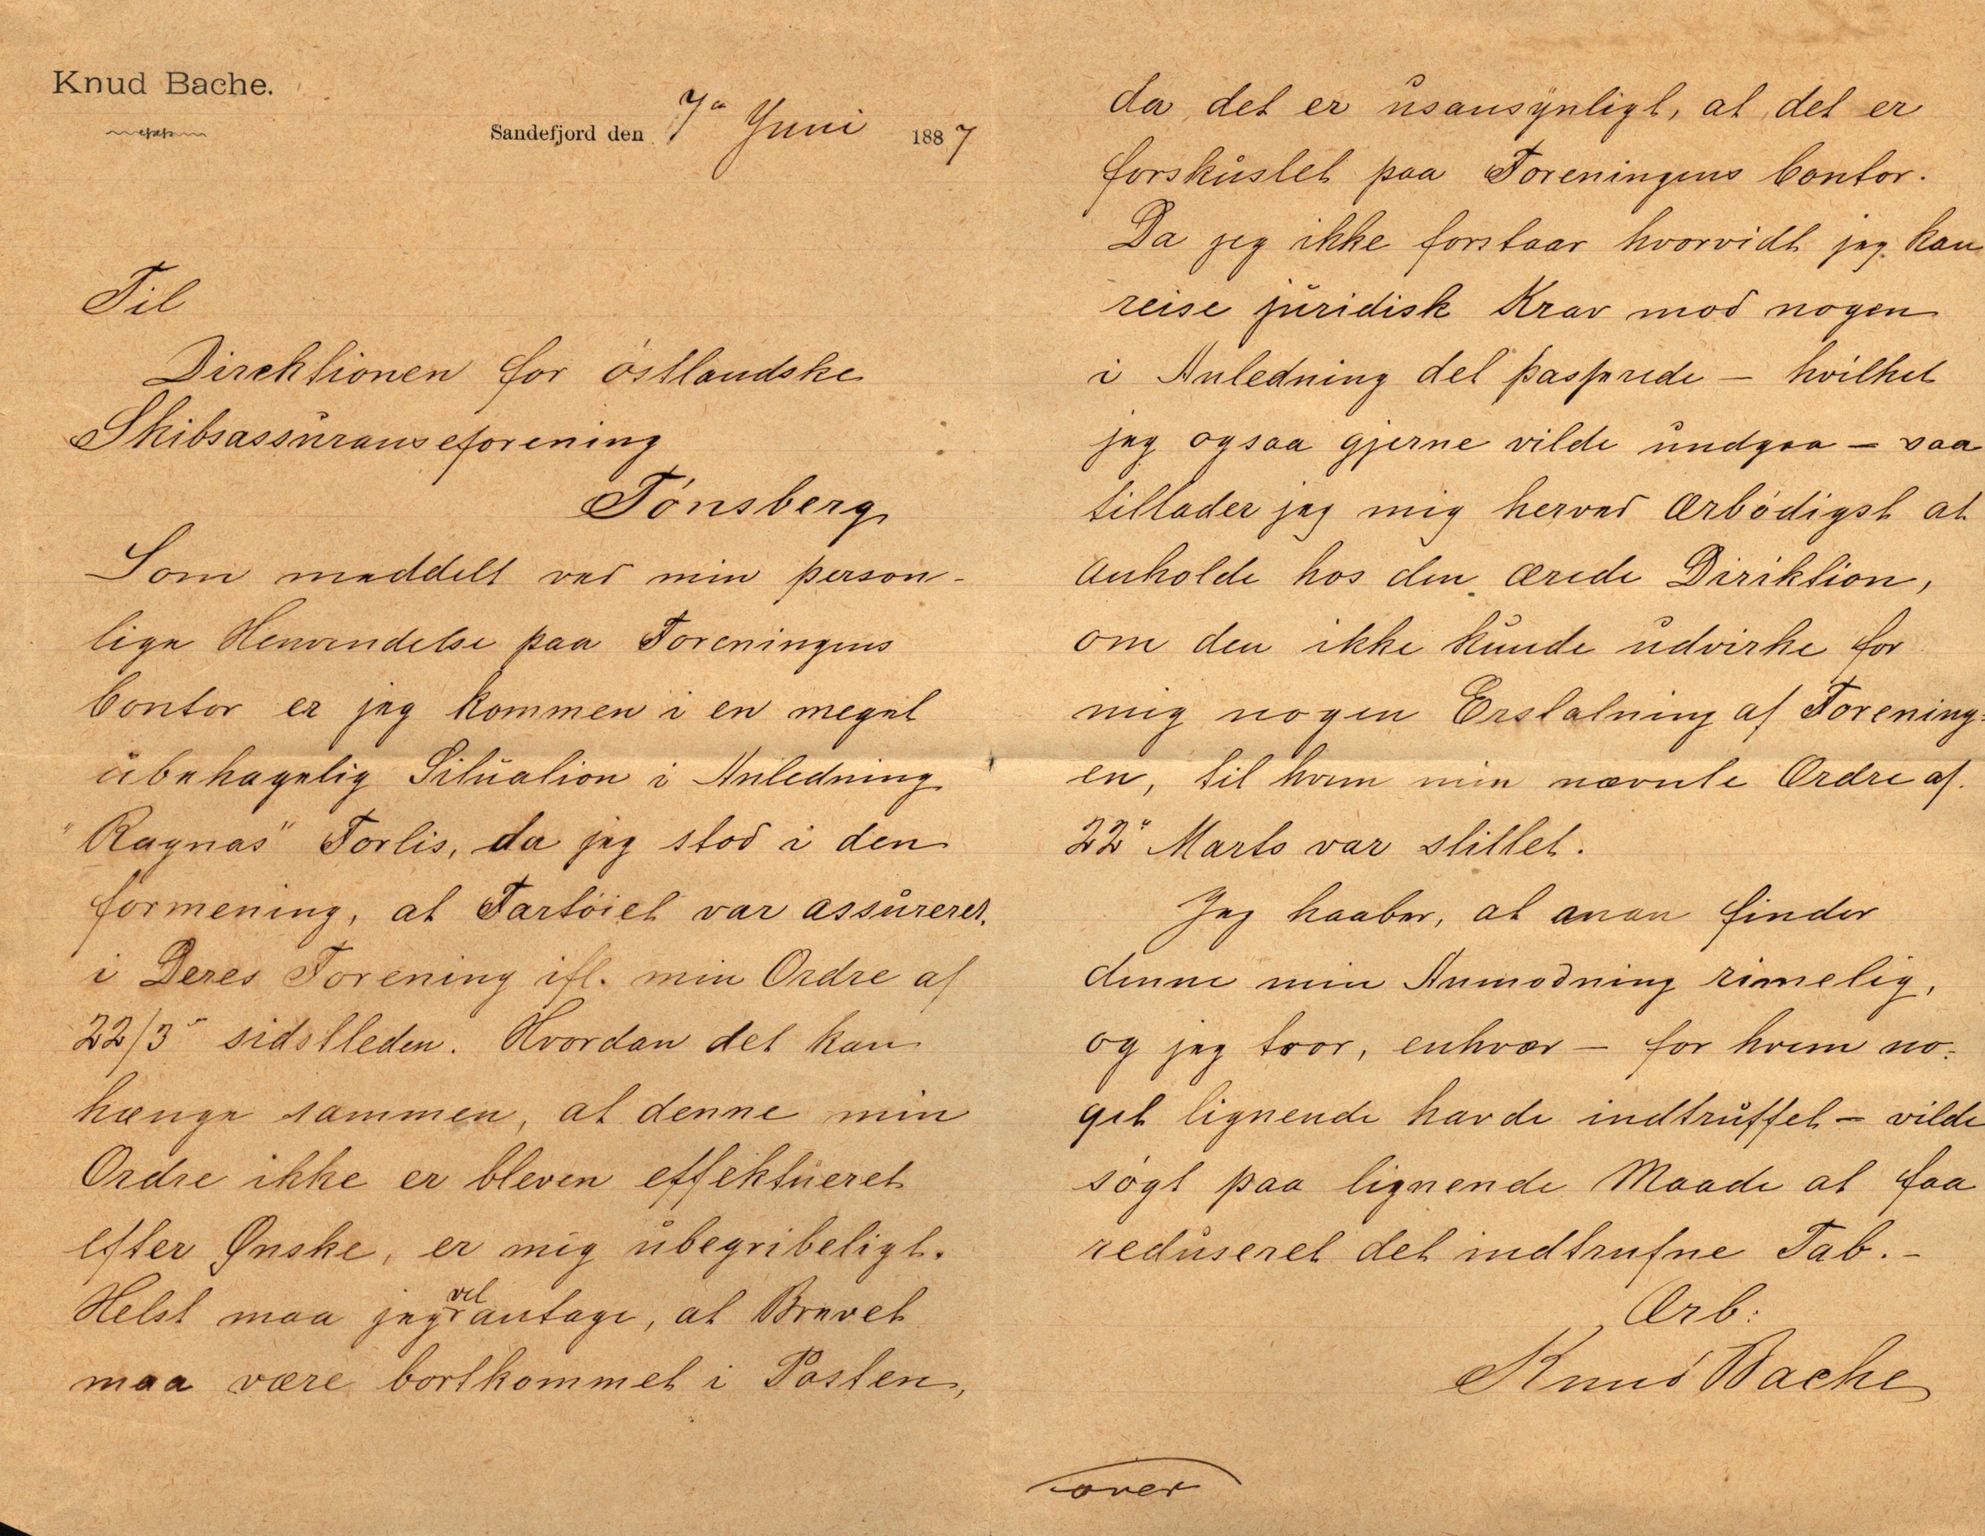 Knud Bache.
Sandefjord den 7de Juni 1887
Til
Direktionen for östlandske
Skibsassuranseforening
Tónsberg
Som meddelt ved min person-
lige Henvendelse paa Foreningens
Contor er jeg kommen i en meget
ubehagelig Situation i Anledning
"Ragnas" Forlis, da jeg stod i den
formening, at Fartöiet var assureret
i Deres Forening ifl. min Ordre af
22/3 sidstleden. Hvordan det kan
hænge sammen, at denne min
Ordre ikke er bleven effektueret
efter Ønske, er mig ubegribeligt.
Helst maa jeg vel antage, at Brevet
maa være bortkommet i Posten,
da det er usansynligt, at det er
forskustet paa Foreningens Contor.
Da jeg ikke forstaar hvorvidt jeg kan
reise juridisk Krav mod nogen
i Anledning det passerede – hvilket
jeg ogsaa gjerne vilde undgaa – saa
tillader jeg mig herved ærbódigst at
anholde hos den ærede Direktion,
om den ikke kunde udvirke for
mig nogen Erstatning af Forening-
en, til hvem min nævnte Ordre af
22 Marts var stillet.
Jeg haaber, at man finder
denne min Anmodning rimelig,
og jeg tror, enhver – for hvem no-
get lignende havde indtruffet – vilde
sögt paa lignende Maade at faa
reduseret det indtrufne Tab. –
Ærb:
Knud Bache
over